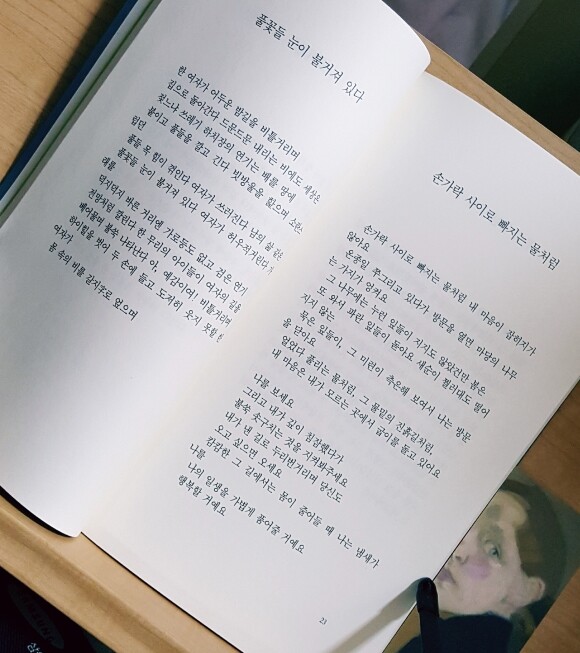 풀꽃들 눈이 불거져 있다
한 여자가 어두운 밤길을 비틀거리며
집으로 돌아간다 드문드문 내리는 비에도 세상은
젖느냐 쓰레기 하치장의 연기는 배를 땅에
붙이고 풀들을 깔고 간다 빗방울을 핥으며 소란
하던
풀들 목 힘이 꺾인다 여자가 쓰러진다 남의 살
풀꽃들 눈이 불거져 있다 여자가 허우적거린다
래를
덕지덕지 바른 거리엔 가로등도 없고 검은 연기
전망처럼 깔린다 한 무리의 아이들이 여자의 길을
베어물며 불쑥 나타난다 아, 예감이여! 비틀거리며
하이힐을 벗어 두 손에 들고 도저히 웃지 못할
여자가
몸 속의 비를 갈지字로 엎으며
손가락 사이로 빠지는 물처럼
손가락 사이로 빠지는 물처럼 내 마음이 잡히지가
않아요
온종일 쭈그리고 있다가 방문을 열면 마당의 나무
는 가지가 엉켜요
그 나무에는 누런 잎들이 지지도 않았건만 봄은
또 와서 파란 잎들이 돋아요 새순이 찔러대도 떨어
지지 않는
묵은 잎들이, 그 미련이 측은해 보여서 나는 방문
을 닫아요
얼었다 풀리는 물처럼, 그 물밑의 진흙길처럼,
내 마음은 내가 모르는 곳에서 굽이를 돌고 있어요
나를 보세요
그리고 내가 깊이 침잠했다가
불쑥 솟구치는 것을 지켜봐주세요
내가 낸 길로 두리번거리며 당신도
오고 싶으면 오세요
캄캄한 그 길에서는 몸이 줄어들 때 나는 냄새가
나를
나의 일생을 가볍게 품어줄 거예요
행복할 거예요
23